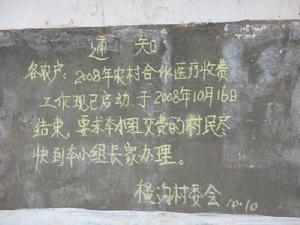 通知
各农户：2008年农村合作医疗收费
工作现已启动于2008年10月16日
结束。要求本小组交费的村民尽
快到本小组长家办理。
横沟村委会 10.10